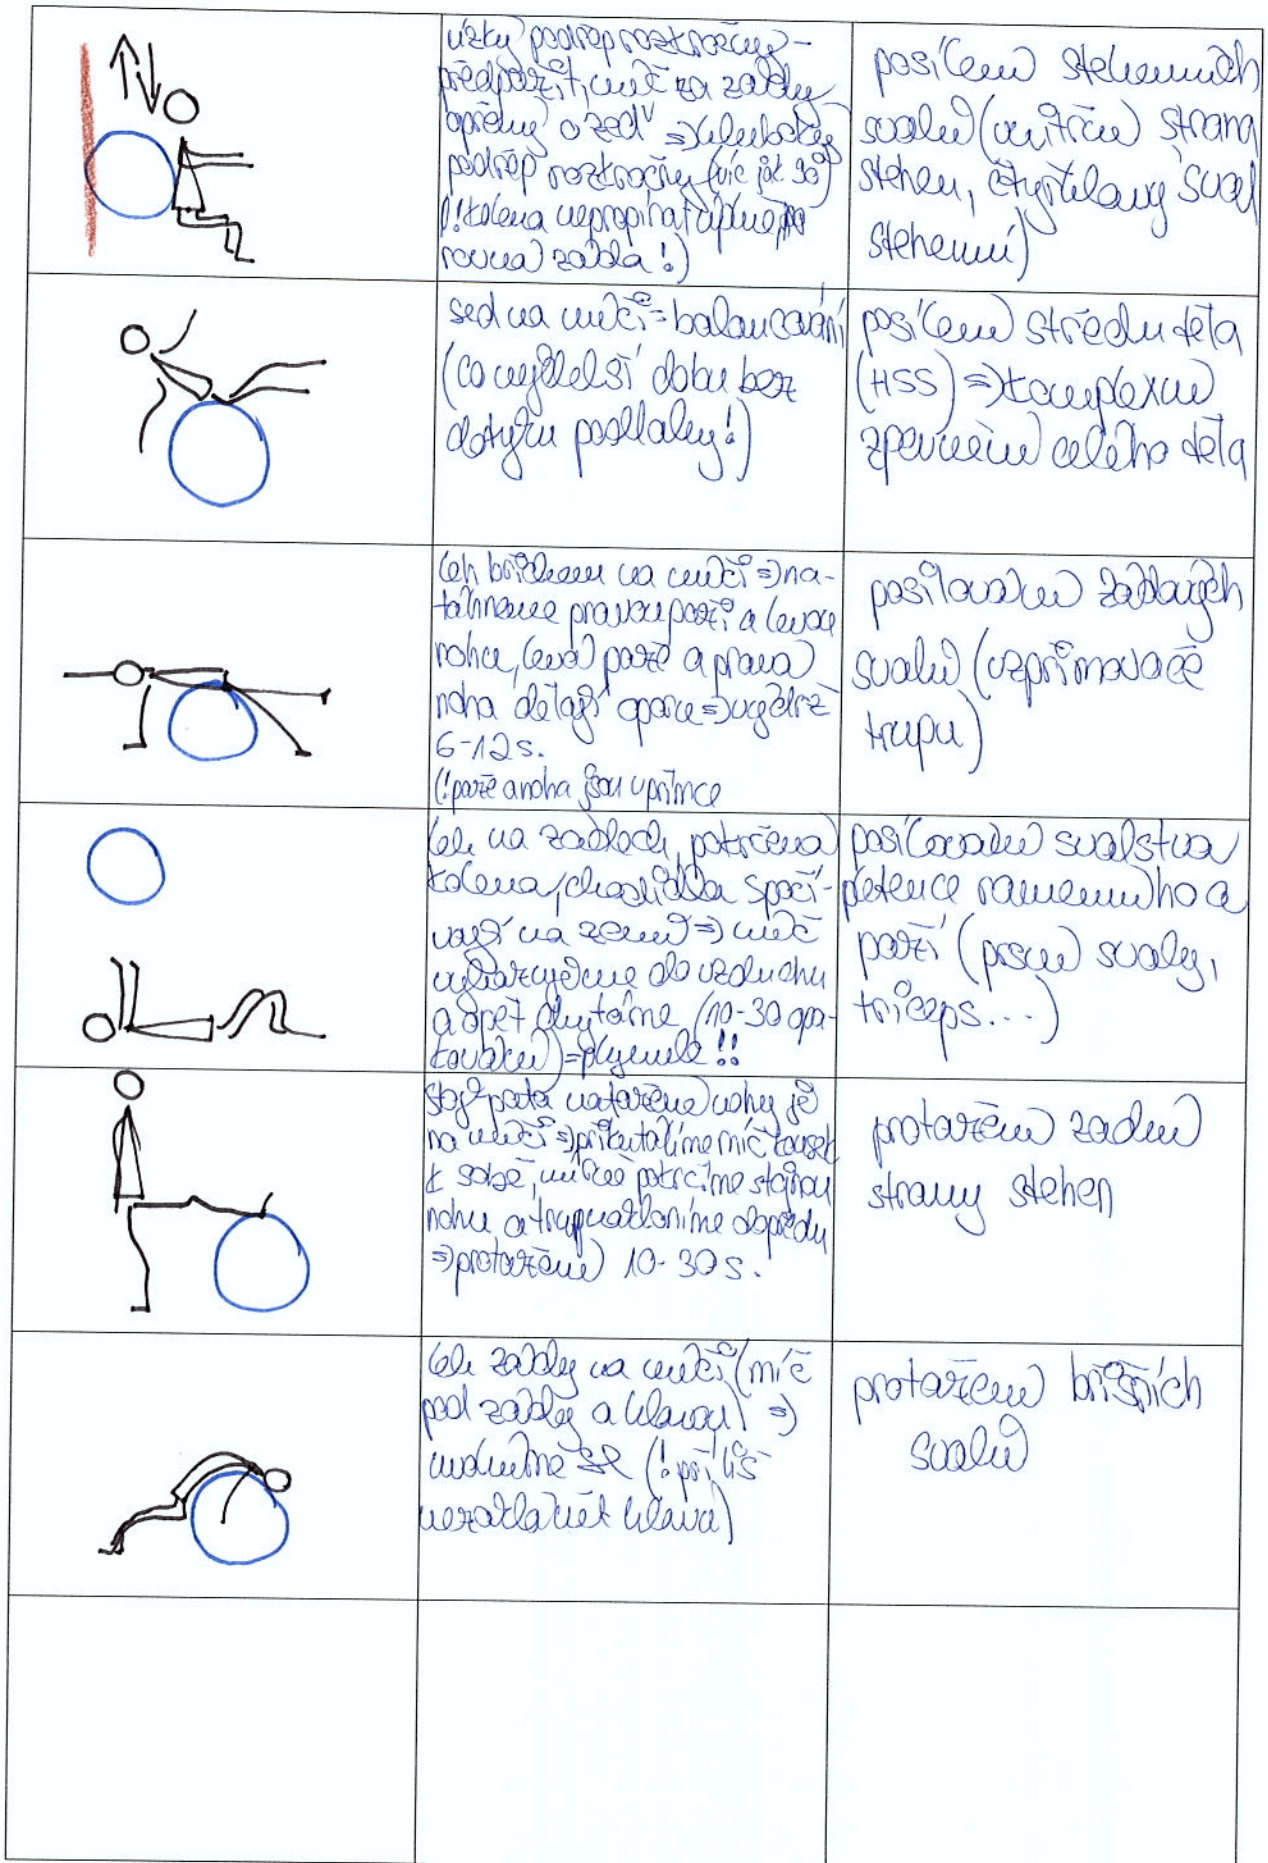 úzký podřep rozkročný -
předpažit, míč za zády
opřený o zeď ⇒ hluboký
podřep rozkročný (víc jak 90°)
(!kolena nepropínat úplně,
rovná záda!)
posílení stehenních
svalů (vnitřní strana
stehen, čtyřhlavý sval
stehenní)
sed na míči = balancování
(co nejdelší dobu bez
dotyku podlahy!)
posílení středu těla
(HSS) ⇒ komplexní
zpevnění celého těla
leh břichem na míči ⇒ na-
táhneme pravou paži a levou
nohu, levá paže a pravá
noha dělají oporu ⇒ výdrž
6-12s.
(!paže a noha jsou v přímce
posilování zádových
svalů (vzpřimovače
trupu)
leh na zádech, pokrčená
kolena, chodidla spočí-
vají na zemi ⇒ míč
vyhazujeme do vzduchu
a opět chytáme (10-30 opa-
kování) = plynule!!
posilování svalstva
pletence ramenního a
paží (prsní svaly,
triceps...)
stoj pata natažené nohy je
na míči ⇒ přikutálíme míč kousek
k sobě, mírně pokrčíme stojnou
nohu a trup nakloníme dopředu
⇒ protažení 10-30s.
protažení zadní
strany stehen
leh zády na míči (míč
pod zády a hlavou) ⇒
uvolníme se (!příliš
nezaklánět hlavu)
protažení břišních
svalů